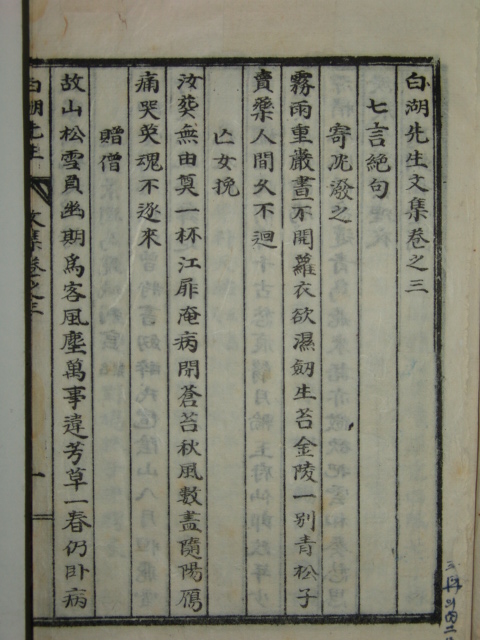 白湖先生文集卷之三
七言絶句
寄潑之
霧雨重巖晝不開蘿衣欲濕劒生苔金陵一別青松子
賣藥人間久不迴
亡女挽
汝葬無由奠一杯江扉淹病閉蒼苔秋風數盡隨陽鴈
痛哭英魂不逐來
贈僧
故山松雪負幽期爲客風塵萬事違芳草一春仍卧病
白湖先生
文集卷之三
一